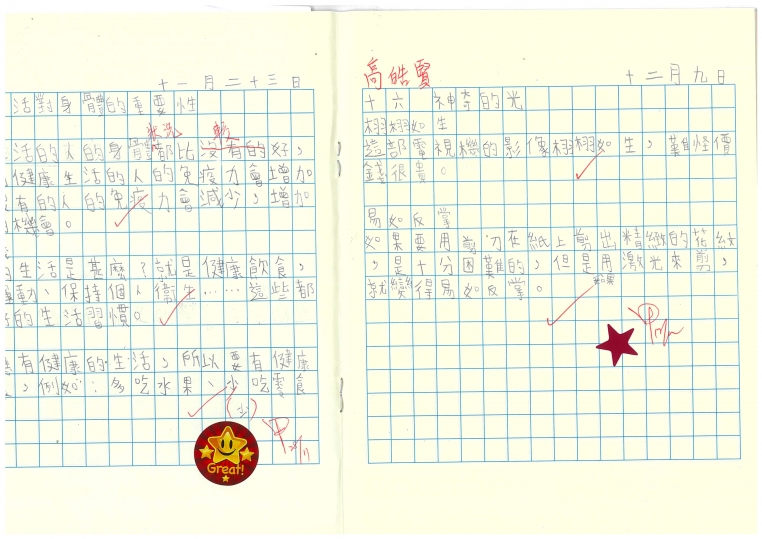 十一月二十三日
活對身體的重要性
狀況 較
活的人的身體都比沒有的好，
健康生活的人的免疫力會增加
有的人的免疫力會減少，增加
機會。
生活是甚麼？就是健康飲食，
動、保持個人衞生……這些都
的生活習慣。
有健康的生活，所以要有健康
，例如：多吃水果、少吃零食
(少)
Great!
高皓賢
十二月九日
十六 神奇的光
栩栩如生
這部電視機的影像栩栩如生，難怪價
錢很貴。
易如反掌
如果要用剪刀在紙上剪出精緻的花紋
，是十分困難的，但是用激光來剪，
如果
就變得易如反掌。